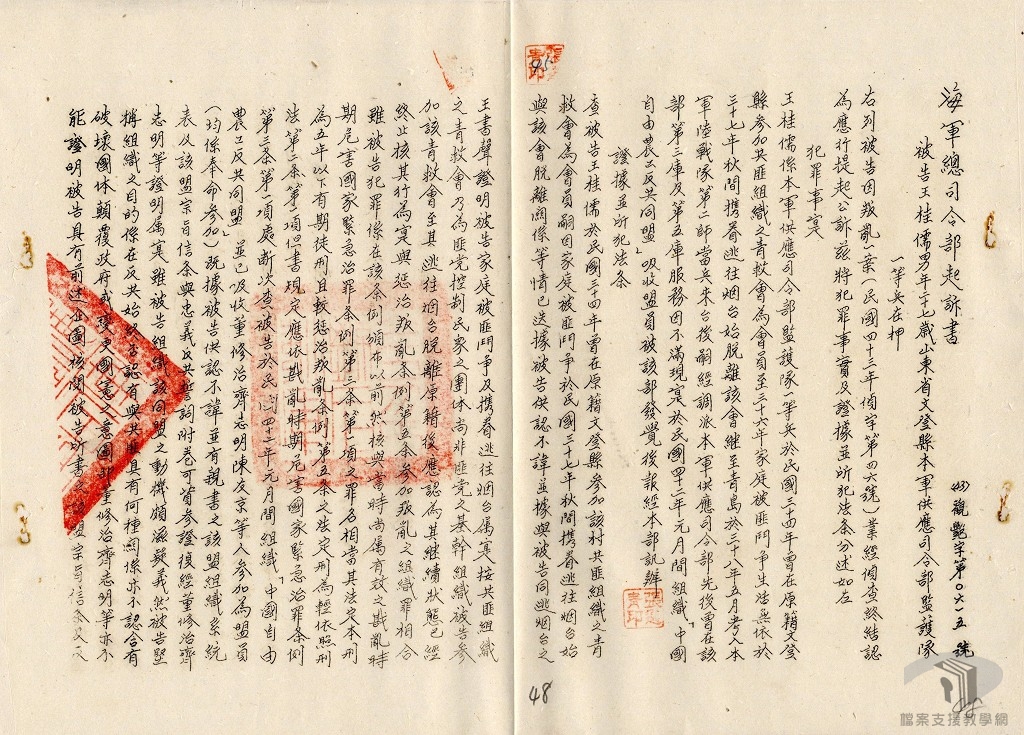 海軍總司令部起訴書
(43)觀艷字第〇六一五號
被告王桂儒男年二十七歲山東省文登縣本軍供應司令部監護隊
一等兵在押
右列被告因叛亂一案(民國四十二年偵字第四六號)業經偵查終結認
為應行提起公訴茲將犯罪事實及證據並所犯法條分述如左
犯罪事實
王桂儒係本軍供應司令部監護隊一等兵於民國三十四年曾在原籍文登
縣參加共匪組織之青救會為會員至三十六年家庭被匪鬥爭生活無依於
三十七年秋間携眷逃往烟台始脫離該會繼至青島於三十八年五月考入本
軍陸戰隊第二師當兵來台後嗣經調派本軍供應司令部先後曾在該
部第二庫及第五庫服務因不滿現實於民國四十二年元月間組織「中國
自由農工反共同盟」吸收盟員被該部發覺後報經本部訊辦
證據並所犯法條
查被告王桂儒於民國三十四年曾在原籍文登縣參加該村共匪組織之青
救會為會員嗣因家庭被匪鬥爭於民國三十七年秋間携眷逃往烟台始
與該會脫離關係等情已迭據被告供認不諱並據與被告同逃烟台之
王書聲證明被告家庭被匪鬥爭及携眷逃往烟台屬實按共匪組織
之青救會乃為匪党控制民眾之團体尚非匪党之基幹組織被告參
加該青救會至其逃往烟台脫離原籍後應認為其繼續狀態已經
終止核其行為實與懲治叛亂條例第五條參加叛亂之組織罪相合
雖被告犯罪係在該條例頒布以前然核與當時尚屬有效之戡亂時
期危害國家緊急治罪條例第二條第一項之罪名相當其法定本刑
為五年以下有期徒刑且較懲治叛亂條例第五條之法定刑為輕依照刑
法第二條第一項但書規定應依戡亂時期危害國家緊急治罪條例
第二條第一項處斷次查被告於民國四十二年元月間組織「中國自由
農工反共同盟」並已吸收董修治齊志明陳友京等人參加為盟員
(均係奉命參加)既據被告供認不諱並有親書之該盟組織系統
表及該盟宗旨信条與忠義反共誓詞附卷可資參證復經董修治齊
志明等證明屬實雖被告組織該同盟之動機頗滋疑義然被告堅
稱組織之目的係在反共始終否認有與共匪具有何種關係亦不認含有
破壞國体顛覆政府或變更國憲之意圖即董修治齊志明等亦不
能證明被告具有前述企圖核閱被告所書該盟宗旨信条及反
45
48
檔案支援教學網